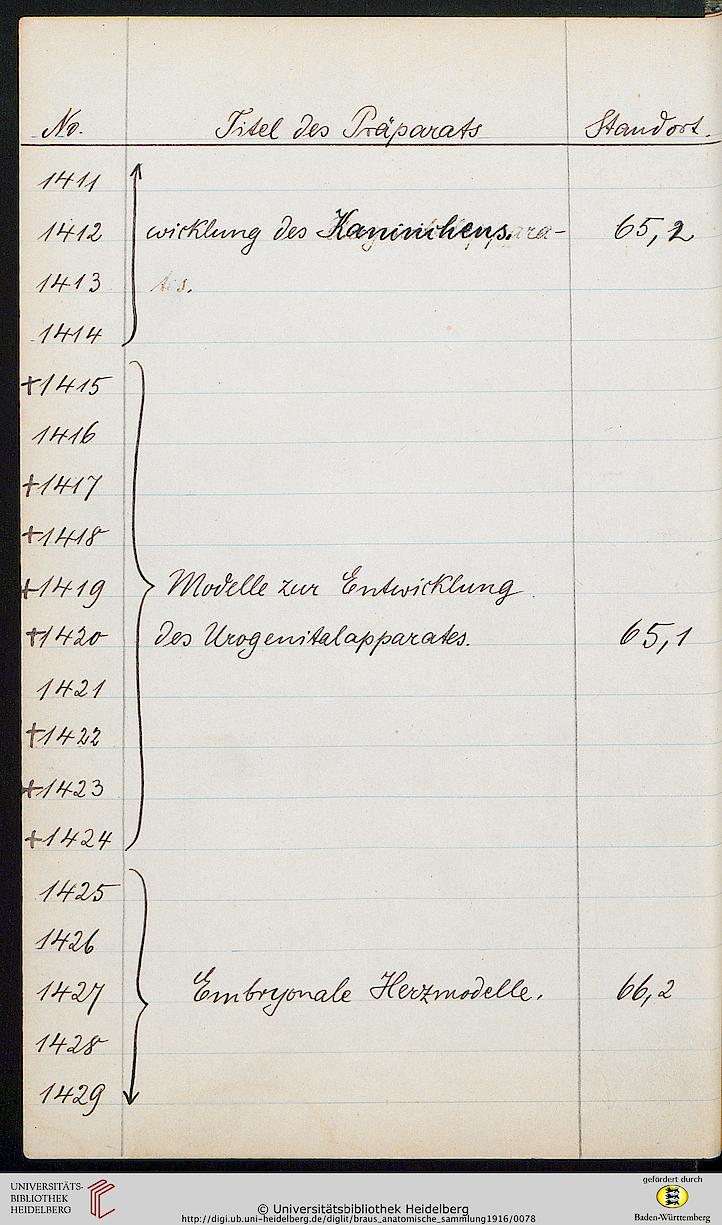 No. Titel des Präparats Standort.
1411
1412 wicklung des Kaninchens. 65,2
1413
1414
+1415
1416
+1417
+1418
+1419 Modelle zur Entwicklung
+1420 des Urogenitalapparates. 65,1
1421
+1422
+1423
+1424
1425
1426
1427 Embryonale Herzmodelle. 66,2
1428
1429
UNIVERSITÄTS-
BIBLIOTHEK
HEIDELBERG
© Universitätsbibliothek Heidelberg
http://digi.ub.uni-heidelberg.de/diglit/braus_anatomische_sammlung1916/0078
gefördert durch
Baden-Württemberg